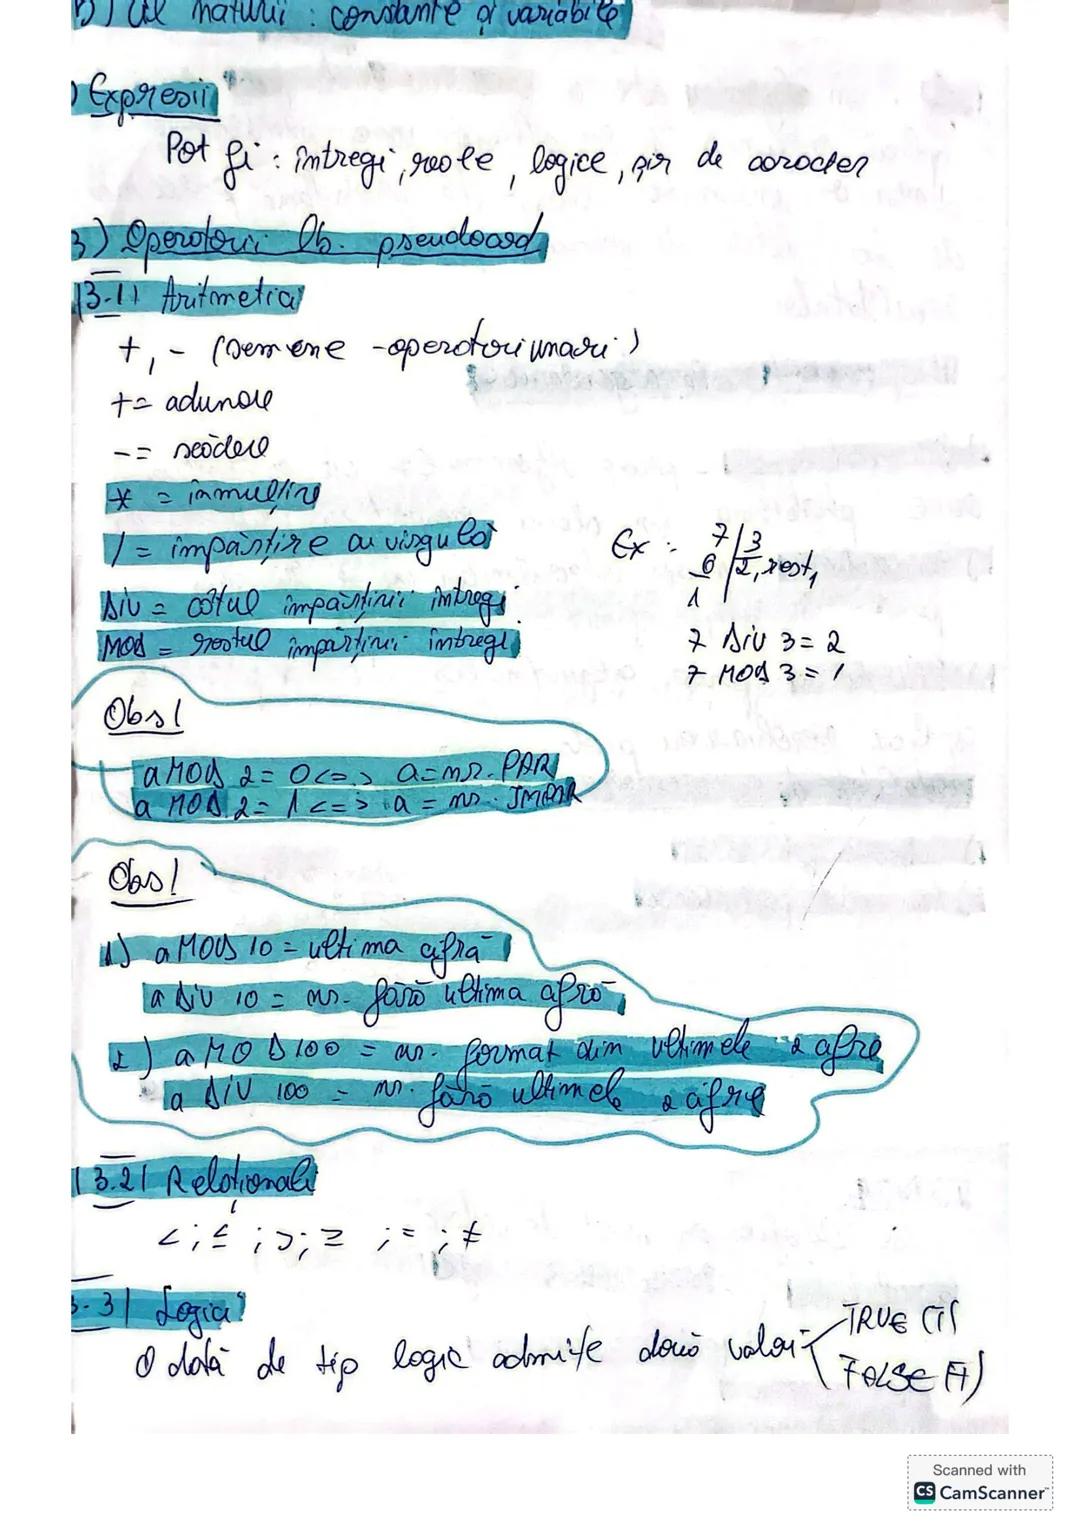 b) al naturii : constante și variabile
) Expresii
Pot fi : întregi, reale, logice, șir de caracter
3) Operatorii lb. pseudocod
|3.1| Aritmetici
+, - (semene - operatori unari)
+= adunare
-= scădere
* = înmulțire
/ = împărțire cu virgulă
DIV = câtul împărțirii întregi
MOD = restul împărțirii întregi
Ex : 7 | 3
6 | 2, rest 1
1
7 DIV 3 = 2
7 MOD 3 = 1
Obs!
a MOD 2 = 0 <=> a = nr. PAR
a MOD 2 = 1 <=> a = nr. IMPAR
Obs!
1) a MOD 10 = ultima cifră
a DIV 10 = nr. fără ultima cifră
2) a MOD 100 = nr. format din ultimele 2 cifre
a DIV 100 = nr. fără ultimele 2 cifre
|3.2| Relaționali
< ; ≤ ; > ; ≥ ; = ; ≠
3.3| Logici
O dată de tip logic admite două valori
TRUE (T)
FALSE (F)
Scanned with
CS CamScanner